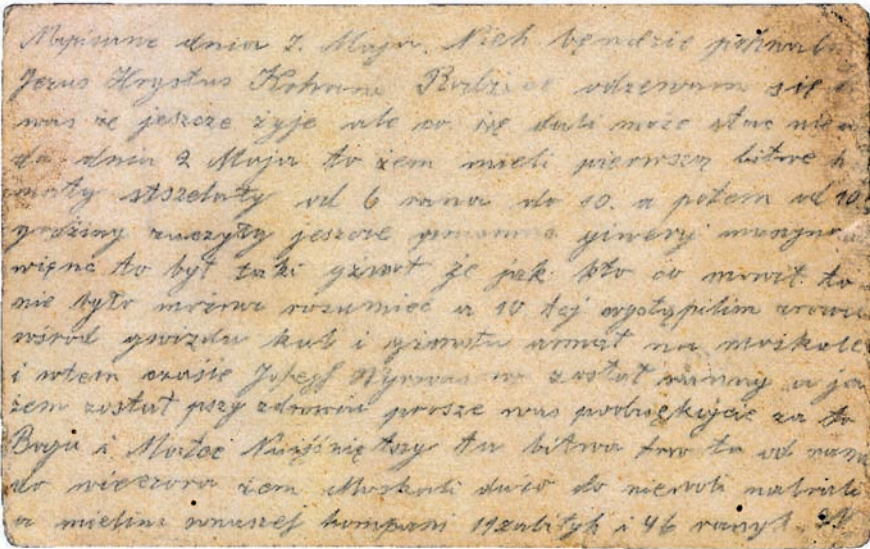 Mapisane dnia 7. Maja. Niech bendzie
Jezus Hrystus Kohani Rodzice odzewam się
was że jeszcze żyje ale co się dali może stać nie
do dnia 2 Maja to żem mieli pierwszą bitwe
maty stszelaty od 6 rana do 10. a potem od 10
godziny zaczyły jeszcze giwery
więnc to był taki gżmot że jak kto co mowił to
nie było można rozumieć a 10 tej wystąpilim
wśrod gwizdu kul i gżmotu armat na moskole
i wtem czasie Josegf został ranny a ja
żem został pszy zdrowiu prosze was podziękujcie za to
Bogu i Matce Najśźniętszy ta bitwa trwa ta od rana
do wieczora żem Moskali duzo do niewoli nabrali
a mielim wnaszej kompani 19 zabityh i 46 ranyh.